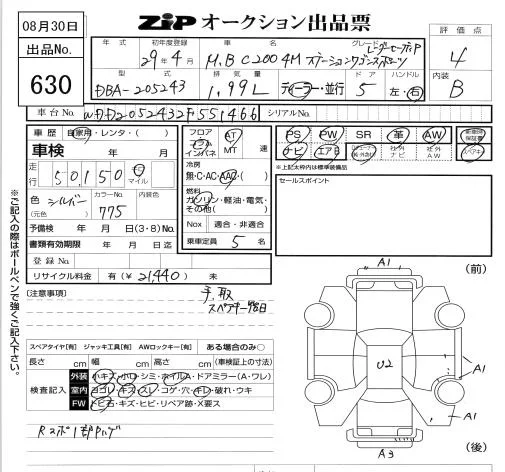 08月30日
出品No.
630
ZIP オークション出品票
年式 初年度登録 車名 グレード
29年4月 M.B C200 4M ステーションワゴンスポーツ レーダーセーフティP
型式 排気量 ドア ハンドル
DBA-205243 1,99L ディーラー・並行 5 左・右
評価点
4
内装
B
車台No. WDD2052432F551466 シリアルNo.
車歴 自家用・レンタ・( )
車検 年 月
走行 50,150 キロ マイル
色 シルバー カラーNo. 内装色
(元色) 775
予備検 年 月 日(3・8)No.
書類有効期限 年 月 日迄
登録No.
リサイクル料金 有(¥21,440) 未
フロア コラム インパネ AT MT 速
冷房
無・C・AC・AAC・( )
燃料
ガソリン・軽油・電気・その他( )
Nox 適合・非適合
乗車定員 5 名
PS PW SR 革 AW 新車時保証書
ナビ エアB 社外ナビ 社外AW スペアキー
*上記太枠内は標準装備品
セールスポイント
※ご記入の際はボールペンで強くご記入下さい。
[注意事項]
手、取
スペアキー後日
スペアタイヤ[有] ジャッキ工具[有] AWロックキー[有] ある場合のみ○
長さ cm 幅 cm 高さ cm (車検証上の寸法)
検査記入
外装 小キズ・凹・シミ・ホイルA・ドアミラー(A・ワレ)
室内 ヨゴレ・キズ・スレ・コゲ・穴・キレ・破れ・ウキ
FW トビ石・キズ・ヒビ・リペア跡・X要ス
(前)
A1
U2
A1
A1
A3
(後)